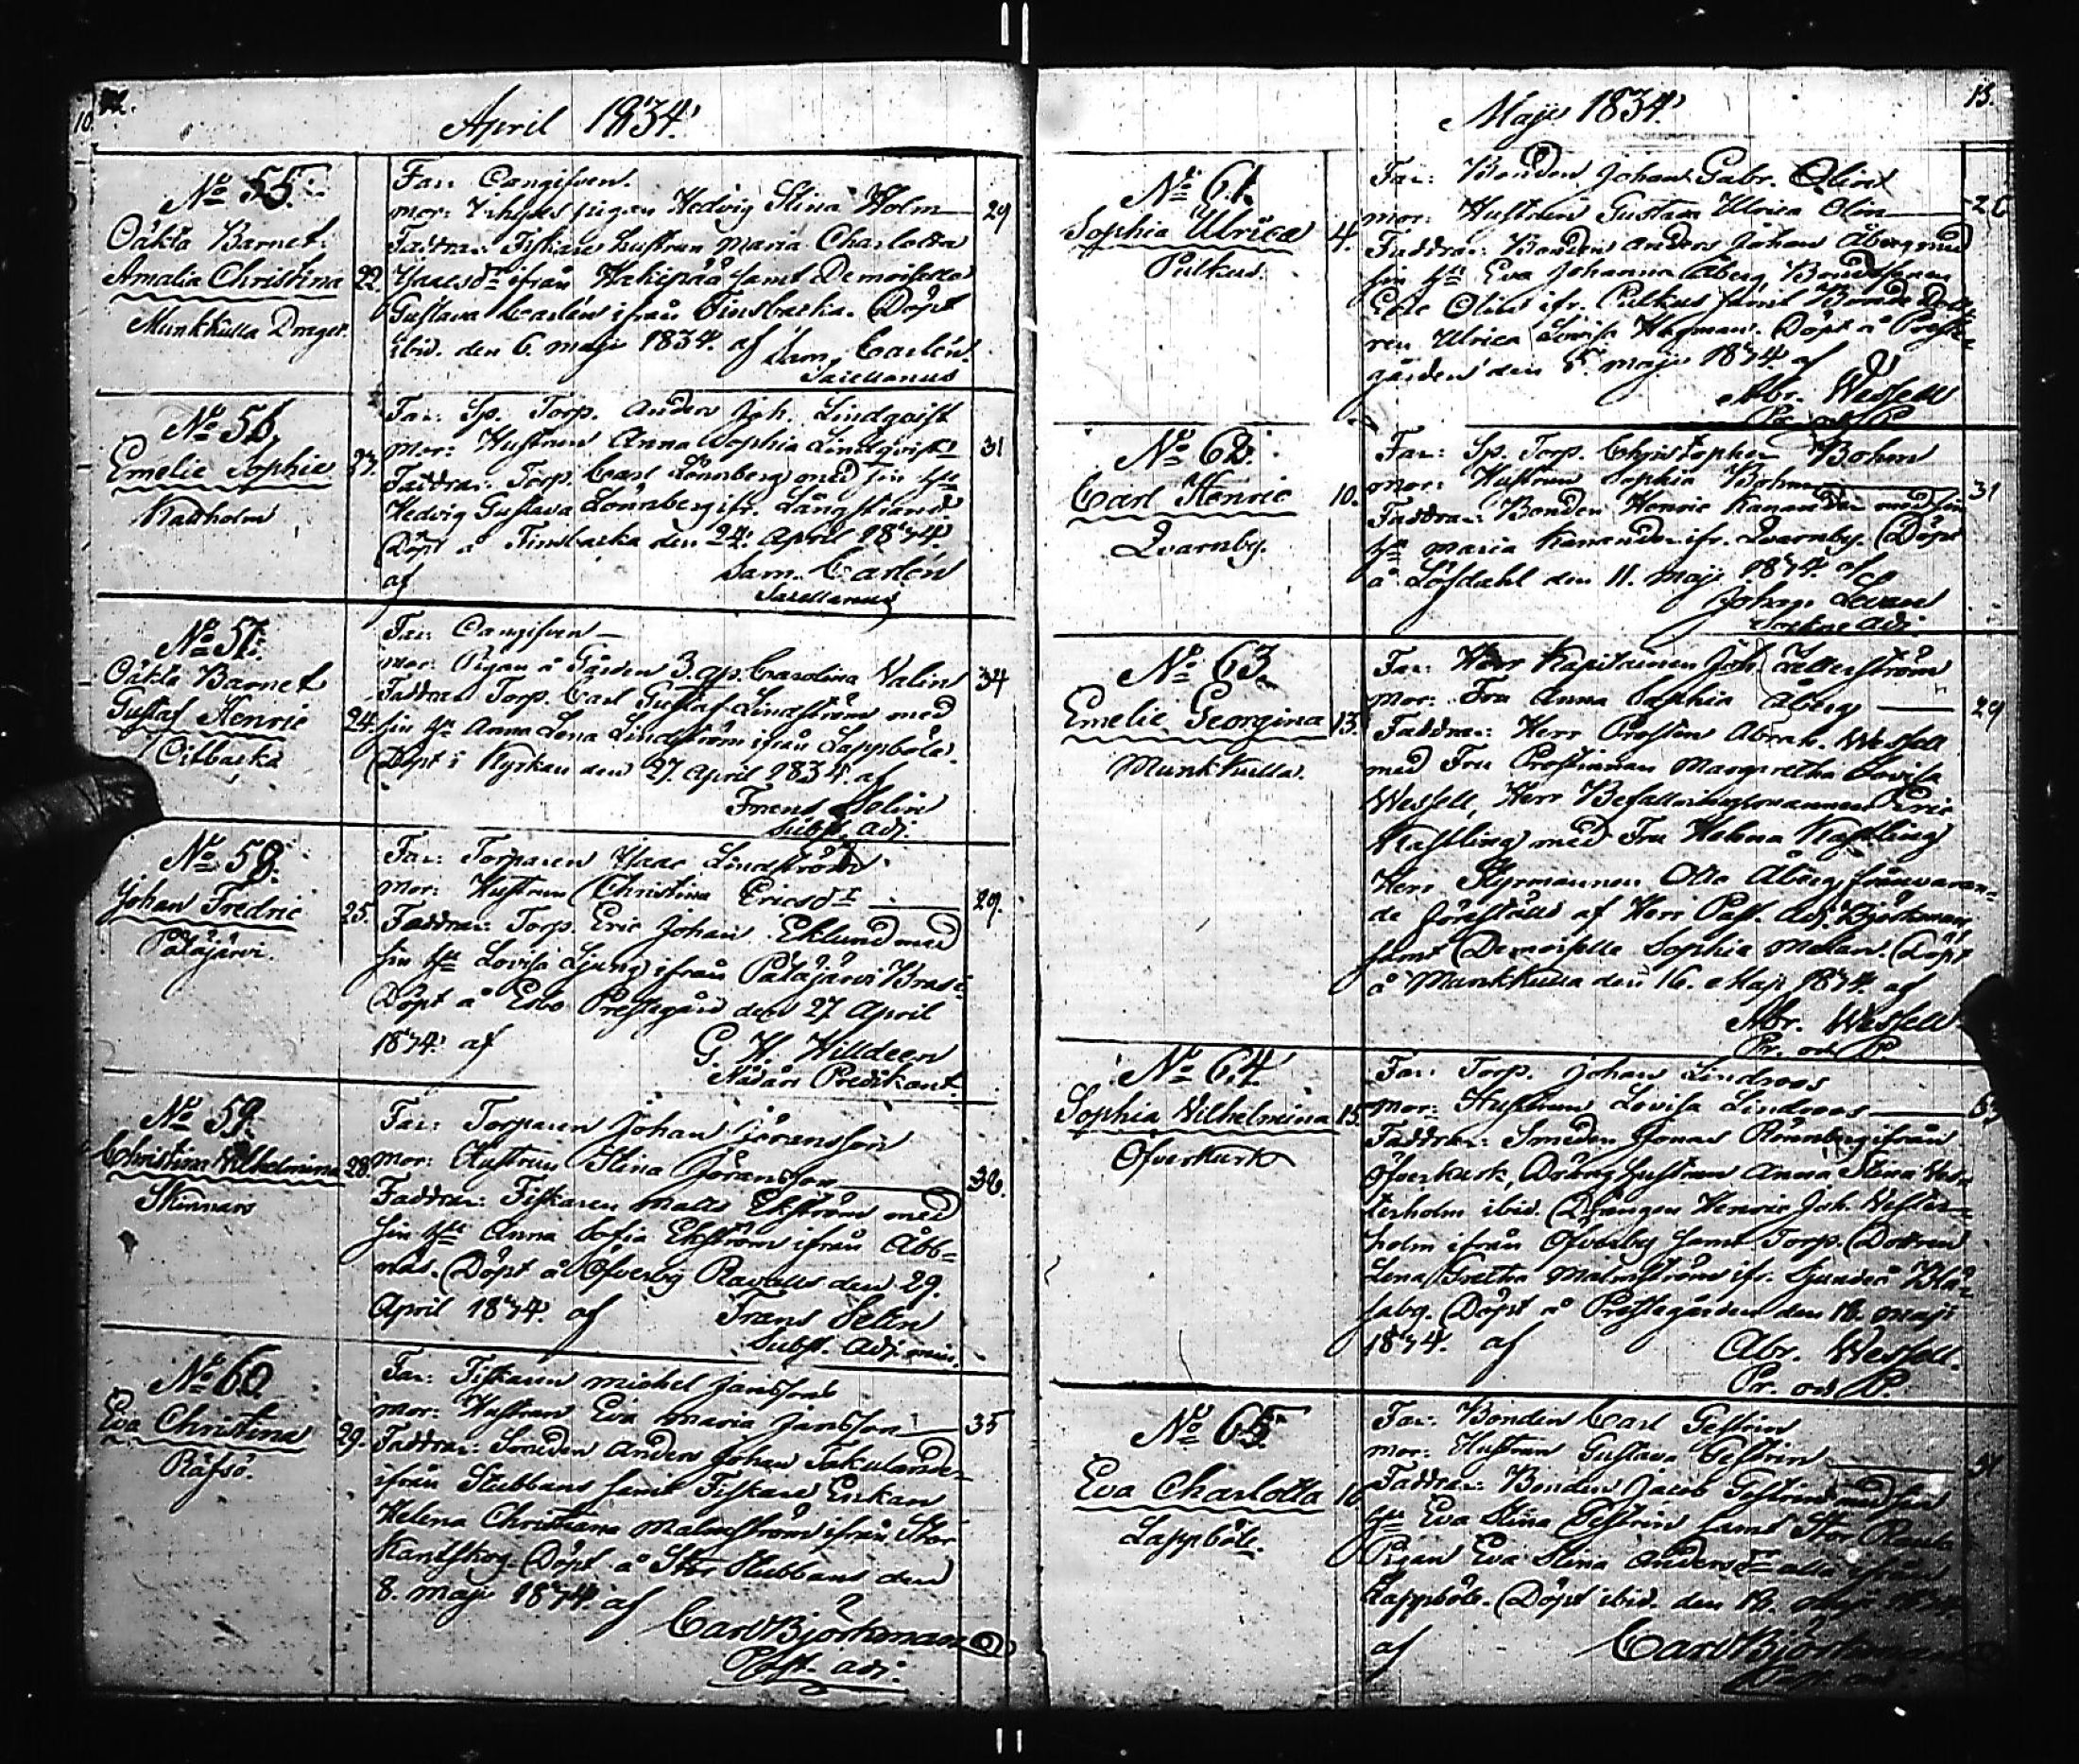 12.
April 1834.
No 55.
Oäkta Barnet
Amalia Christina
Munkkulla Dragst.
22.
Far: Oangifven.
Mor: Inhyses pigan Hedvig Stina Holm
29
Faddrar: Fiskare hustrun Maria Charlotta
Isacsdr ifrån samt Demoiselle
Gustava Carlén ifrån Finsbacka. Döpt
ibid. den 6. Maji 1834. af Sam. Carlén.
Sacellanus
No 56.
Emelie Sophie
Kallholm
Far: Sp. Torp. Anders Joh. Lindqvist
Mor: Hustrun Anna Sophia Lindqvist
31
Faddrar: Torp. Carl Lönnberg med sin Hu
Hedvig Gustava Lönnberg ifr. Långstrand.
Döpt å Finsbacka den 24. April 1834.
af
Sam. Carlén
Sacellanus
No 57.
Oäkta Barnet
Gustaf Henric
24.
Far: Oangifven
Mor: Pigan å Gården Carolina Valin
34
Faddrar Torp. Carl Gustaf Lindström med
sin Hu Anna Lena Lindström ifrån Lappböle.
Döpt i Kyrkan den 27. April 1834. af
Frans Selin
Subst. Adj.
No 58.
Johan Fredric
Palajärvi.
25.
Far: Torparen Isaac Lindström
Mor: Hustrun Christina Ericsdr
29.
Faddrar: Torp. Eric Johan Eklund med
sin Hu Lovisa Ljung ifrån Palajärvi
Döpt å Esbo Prestegård den 27 April
1834. af
G. H. Willdeen
Nådårs Predikant.
No 59.
Christina Wilhelmina
Skinnars
28.
Far: Torparen Johan Göransson
Mor: Hustrun Stina Göransson
Faddrar: Fiskaren Matts Ekström med
sin Hu Anna Sofia Ekström ifrån Åbb-
näs. Döpt å Öfverby Ravalls den 29.
April 1834. af
Frans Selin
Subst. Adj. min.
No 60.
Eva Christina
Räfsö.
29.
Far: Fiskaren Michel Jansson
Mor: Hustrun Eva Maria Jansson
35
Faddrar: Smeden Anders Johan
ifrån Stubbans samt Fiskare Enkan
Helena Christiana Malmström ifrån Stor
Kantskog. Döpt å Stor Stubbans den
8. Maji 1834. af
Carl Björkman
Past. adj.
13.
Maji 1834.
No 61.
Sophia Ulrica
Pulkus.
4.
Far: Bonden Johan Gabr. Olin
Mor: Hustrun Gustava Ulrica Olin
Faddrar: Bonden Anders Johan Åberg med
sin Hu Eva Johanna Åberg,
Olin ifr. Pulkus samt Bonde Dott-
ren Ulrica Lovisa Hagman. Döpt å Preste-
gården den 5. Maji 1834. af
Abr. Wessell
Pr. och P.
No 62.
Carl Henric
Qvarnby.
10.
Far: Sp. Torp. Christopher Bohm
Mor: Hustrun Sophia Bohm
31
Faddrar: Bonden Henric Kanander med sin
Hu Maria Kanander ifr. Qvarnby. Döpt
å Löfdahl den 11. Maji 1834. af
Johan Levan
Sockne Adj.
No 63.
Emelie Georgina
Munkkulla.
13.
Far: Herr Kapitainen Joh. Zetterström
Mor: Fru Anna Sophia Åberg
29
Faddrar: Herr Prosten Abrah. Wessell
med Fru Prostinnan Margaretha Lovisa
Wessell, Herr Befallningsmannen Eric
Kastling med Fru Helena Kastling
Herr Styrmannen Otto Åberg frånvaran-
de föreställd af Herr Past. Adj. Björkman
samt Demoiselle Sophia Melan. Döpt
å Munkkulla den 16. Maji 1834. af
Abr. Wessell
Pr. och P.
No 64.
Sophia Wilhelmina
Öfverkurk
15.
Far: Torp. Johan Lindroos
Mor: Hustrun Lovisa Lindroos
Faddrar: Smeden Jonas Rönnberg ifrån
Öfverkurk, Dräng hustrun Anna Stina Wes-
terholm ibid. Drängen Henric Joh. Wester-
holm ifrån Öfverby samt Torp. Dottren
Lena Gretha Malmström ifr. Sjundeå
Döpt å Prestegården den 18. Maji
1834. af
Abr. Wessell.
Pr. och P.
No 65.
Eva Charlotta
Lappböle.
Far: Bonden Carl Gestrin
Mor: Hustrun Gustava Gestrin
Faddrar: Bonden Jacob Gestrin med sin
Hu Eva Stina Gestrin samt
Pigan Eva Stina Andersdr alla ifrån
Lappböle. Döpt ibid. den 18. Maji 1834.
af
Carl Björkman